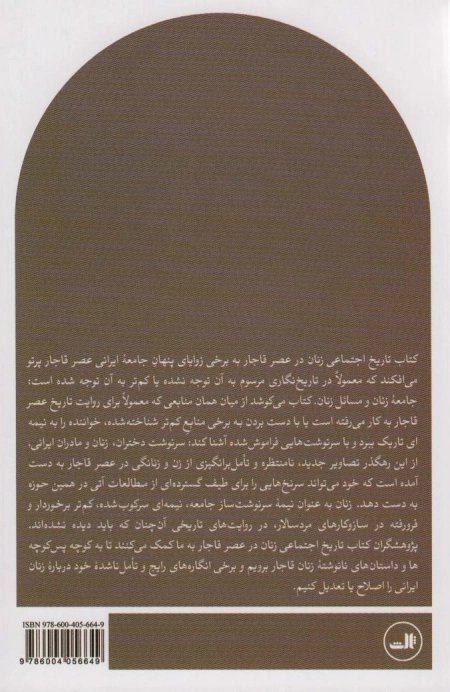 کتاب تاریخ اجتماعی زنان در عصر قاجار به برخی زوایای پنهان جامعهٔ ایرانی عصر قاجار پرتو
می‌افکند که معمولاً در تاریخ‌نگاری مرسوم به آن توجه نشده یا کم‌تر به آن توجه شده است؛
جامعهٔ زنان و مسائل زنان. کتاب می‌کوشد از میان همان منابعی که معمولاً برای روایت تاریخ عصر
قاجار به کار می‌رفته است یا با دست بردن به برخی منابع کم‌تر شناخته‌شده، خواننده را به نیمه
ای تاریک ببرد و با سرنوشت‌هایی فراموش‌شده آشنا کند؛ سرنوشت دختران، زنان و مادران ایرانی.
از این رهگذر تصاویر جدید، نامنتظره و تأمل‌برانگیزی از زن و زنانگی در عصر قاجار به دست
آمده است که خود می‌تواند سرنخ‌هایی را برای طیف گسترده‌ای از مطالعات آتی در همین حوزه
به دست دهد. زنان به عنوان نیمهٔ سرنوشت‌ساز جامعه، نیمه‌ای سرکوب‌شده، کم‌تر برخوردار و
فرورفته در سازوکارهای مردسالار، در روایت‌های تاریخی آن‌چنان که باید دیده نشده‌اند.
پژوهشگران کتاب تاریخ اجتماعی زنان در عصر قاجار به ما کمک می‌کنند تا به کوچه پس‌کوچه
ها و داستان‌های نانوشتهٔ زنان قاجار برویم و برخی انگاره‌های رایج و تأمل‌ناشدهٔ خود دربارهٔ زنان
ایرانی را اصلاح یا تعدیل کنیم.
ISBN 978-600-405-664-9
9 786004 056649
ثالث